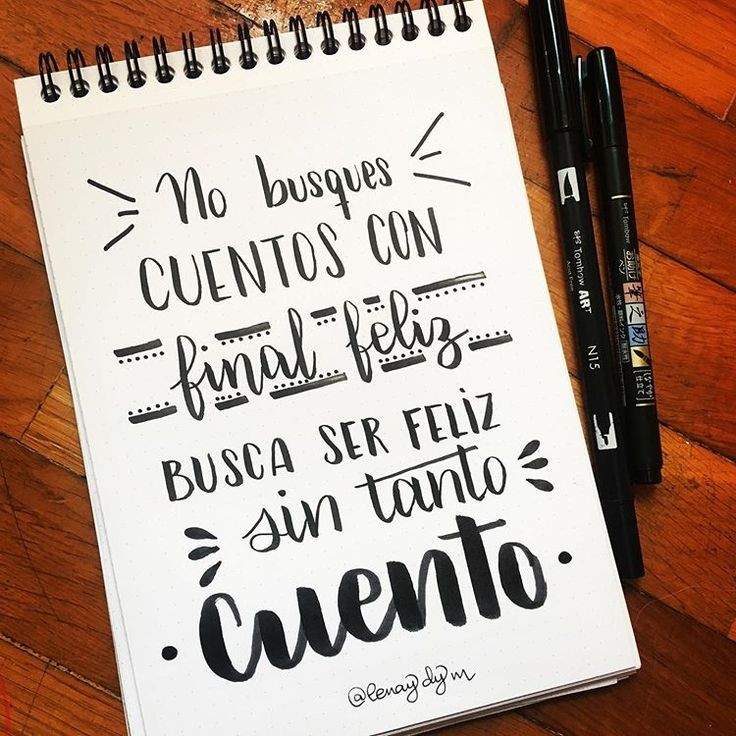 No busques
CUENTOS CON
final feliz
BUSCA SER FELIZ
sin tanto
cuento
@lenaydym
Tombow ART
N15
Tombow